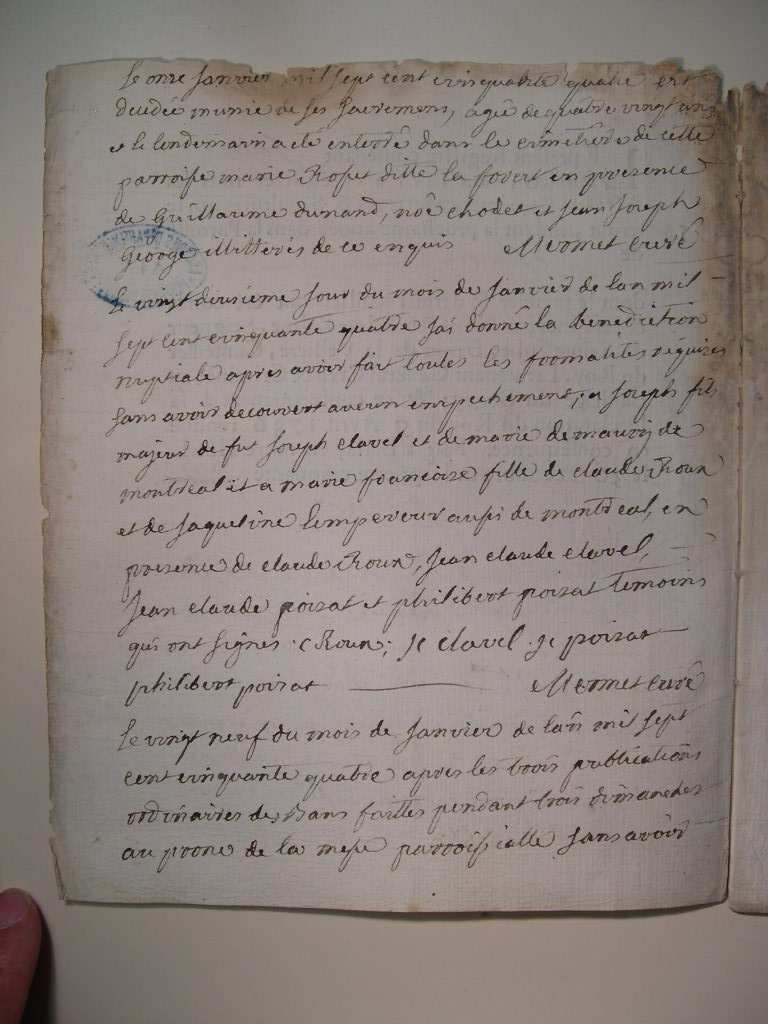 Le onze Janvier mil sept cent cinquante quatre est
decedée munie de ses sacremens, agée de quatre vingt ans
et le lendemain a eté enterré dans le cimetiere de cette
parroisse marie Rosset ditte la foret en presence
de Guillaume dunand, noê chodet et Jean Joseph
George illitterés de ce enquis Mermet curé
Le vingt deusieme jour du mois de Janvier de lan mil
sept cent cinquante quatre jai donné la benediction
nuptiale apres avoir fait toutes les formalites requises
sans avoir decouvert aucun empechement, a Joseph fils
majeur de fut Joseph clavel et de marie de mauvij de
montreal et a marie francoise fille de claude Roux
et de Jaqueline Lempereur aussi de montreal, en
presence de claude Roux, Jean claude clavel,
Jean claude poizat et philibert poizat temoins
qui ont signes. C Roux; Je clavel. je poizat
philibert poizat Mermet curé
Le vingt neuf du mois de Janvier de lan mil sept
cent cinquante quatre apres les trois publications
ordinaires des bans faittes pendant trois dimanches
au prone de la messe parroissialle sans avoir